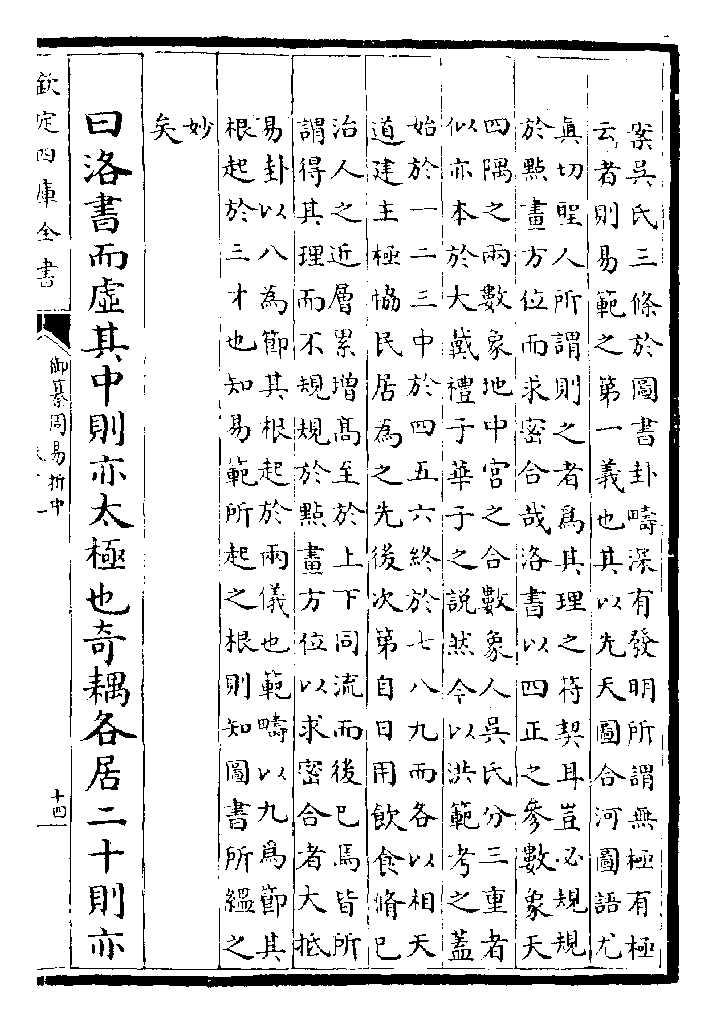 案吳氏三條於圖書卦疇深有發明所謂無極有極
云者則易範之第一義也其以先天圖合河圖語尤
真切聖人所謂則之者為其理之符契耳豈必規規
於點畫方位而求密合哉洛書以四正之參數象天
四隅之兩數象地中宮之合數象人吳氏分三重者
似亦本於大戴禮子華子之説然今以洪範考之蓋
始於一二三中於四五六終於七八九而各以相天
道建主極協民居為之先後次第自日用飲食脩已
治人之近層累增髙至於上下同流而後已焉皆所
謂得其理而不規規於點畫方位以求密合者大抵
易卦以八為節其根起於兩儀也範疇以九為節其
根起於三才也知易範所起之根則知圖書所緼之
妙
矣
曰洛書而虛其中則亦太極也奇耦各居二十則亦
欽定四庫全書
御纂周易折中
十四